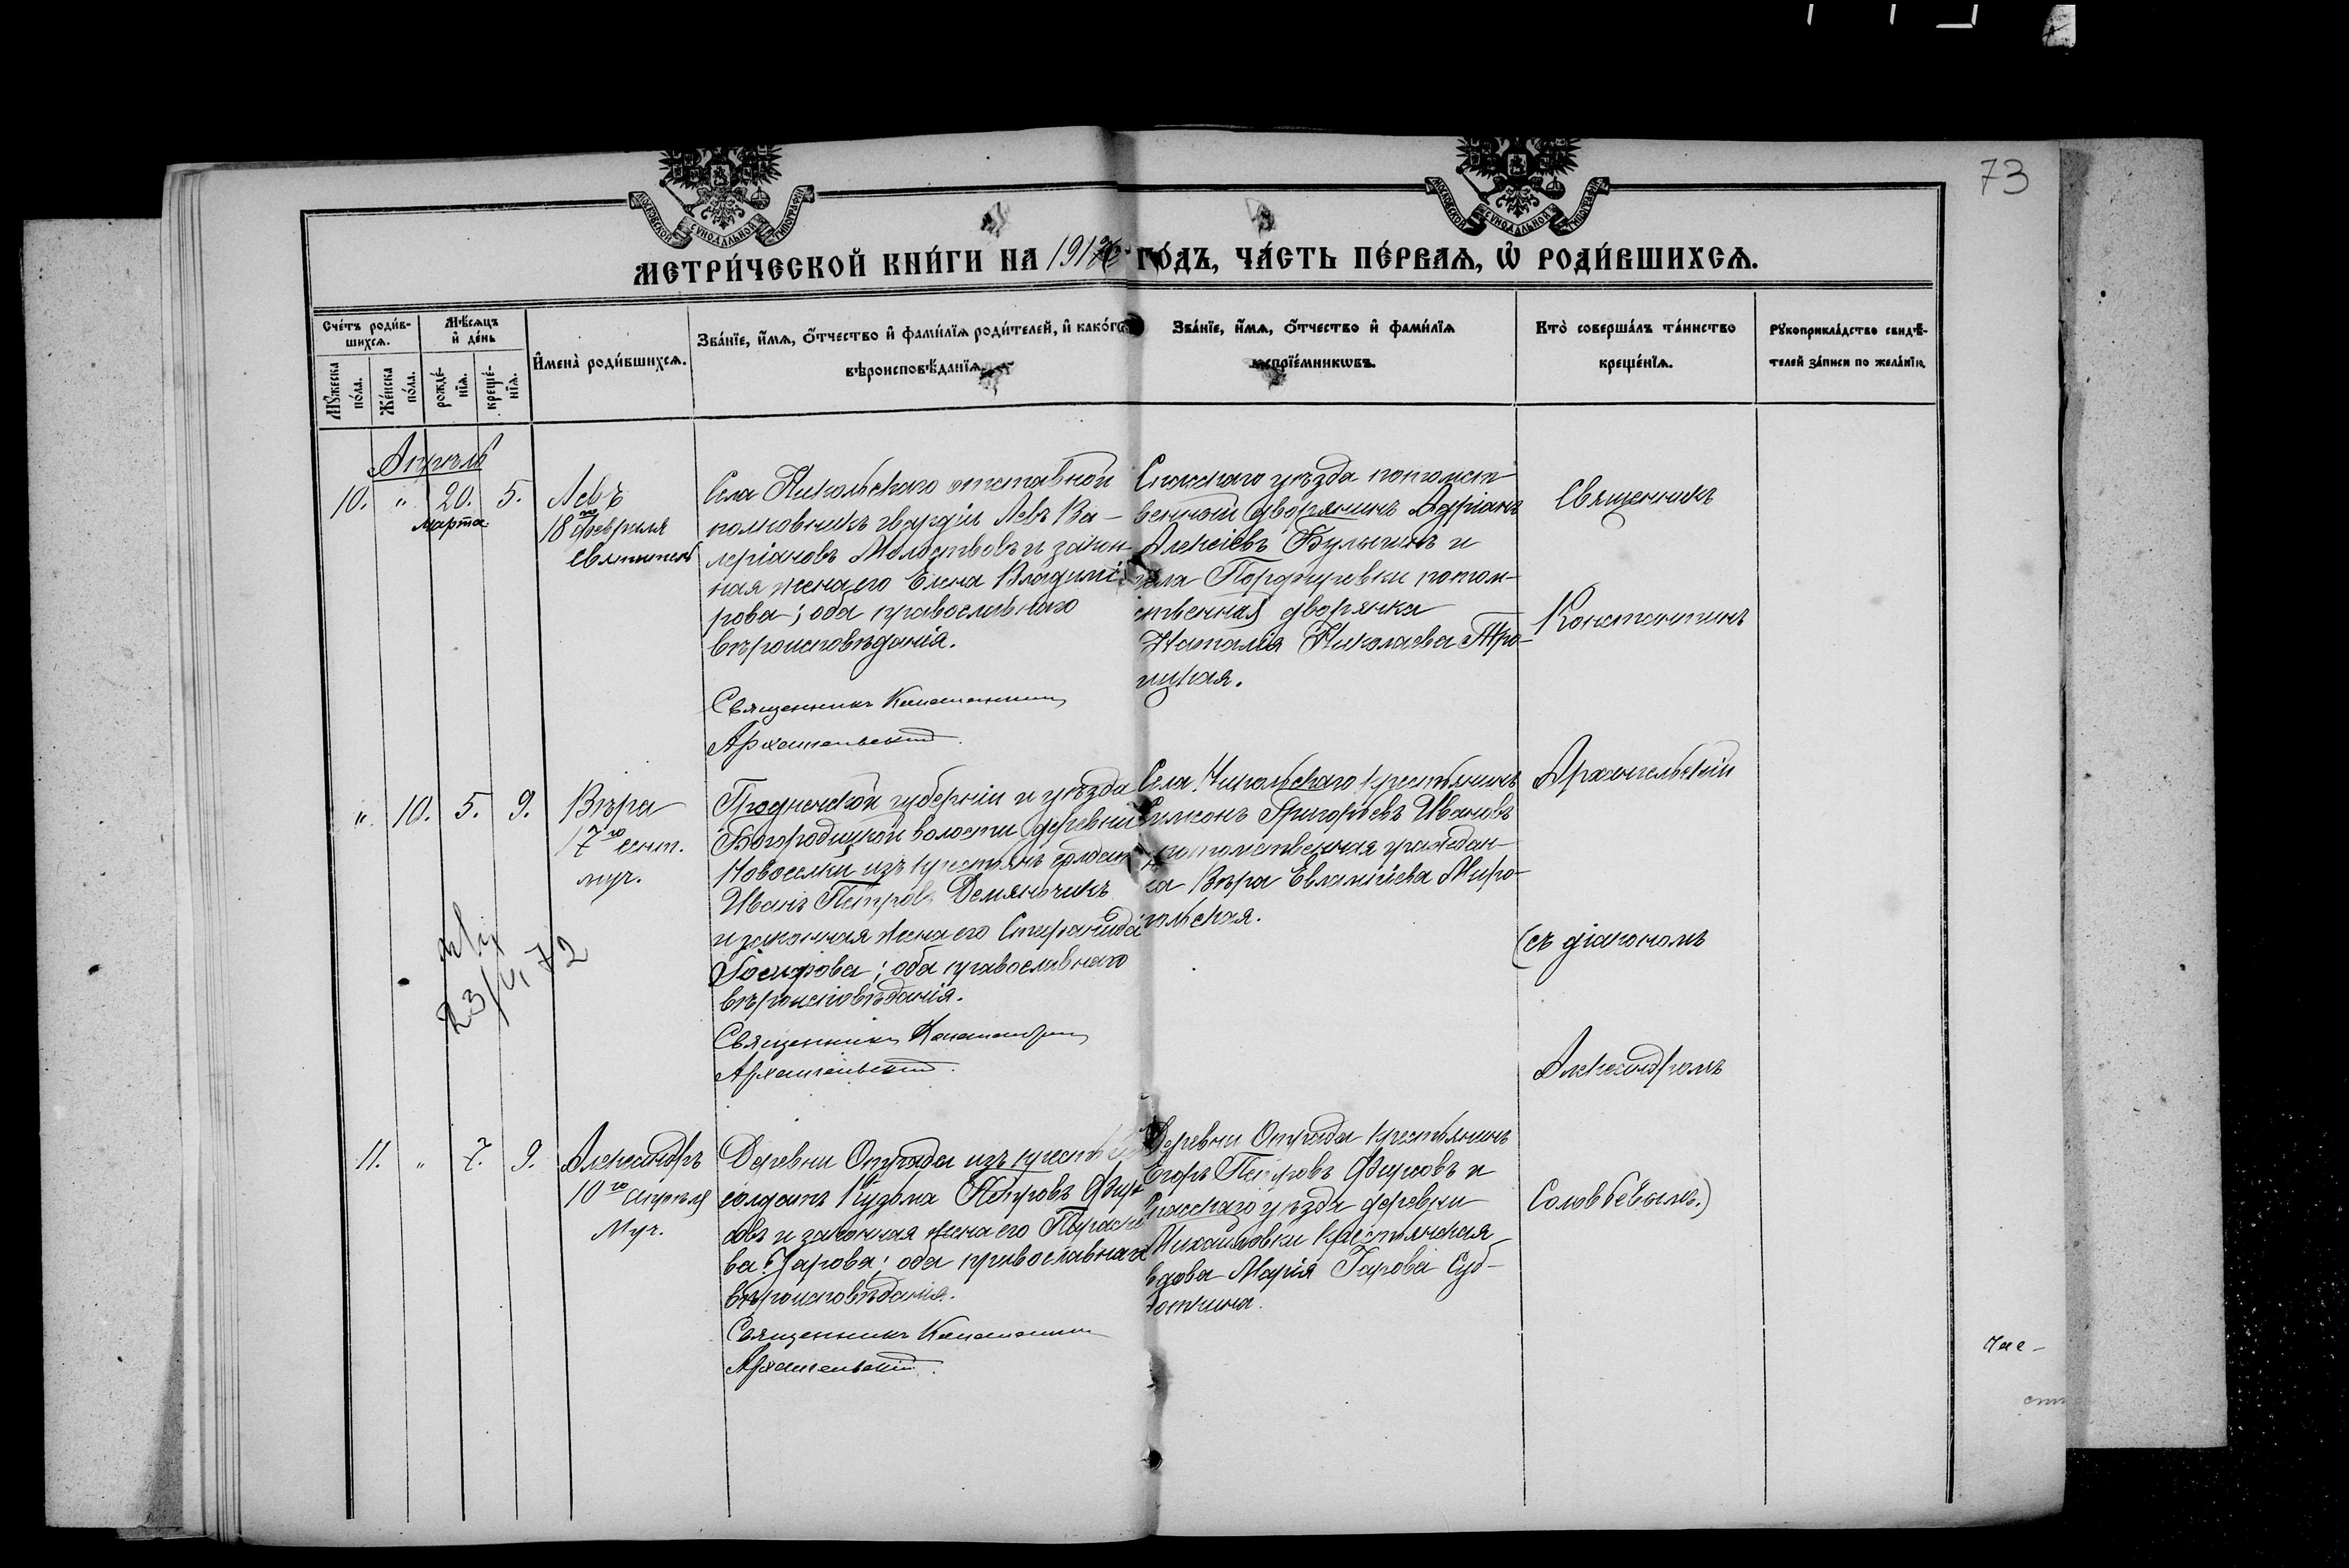 73
МОСКОВСКОЙ СѴНОДАЛЬНОЙ ТИПОГРАФІИ
МОСКОВСКОЙ СѴНОДАЛЬНОЙ ТИПОГРАФІИ
МЕТРИ́ЧЕСКОЙ КНИ́ГИ НА 191 ГО́ДЪ, ЧА́СТЬ ПЕ́РВАѦ, Ѡ҆ РОДИ́ВШИХСѦ.
Сче́тъ роди́в-
шихсѧ.
Мꙋ́жеска
по́ла.
Же́нска
по́ла.
Мѣ́сѧцъ
и҆ де́нь
рожде́-
нїѧ.
креще́-
нїѧ.
И҆мена̀ роди́вшихсѧ.
Зва́нїе, и҆́мѧ, ѻ҆́тчество и҆ фами́лїѧ роди́телей, и҆ како́гѡ
вѣроисповѣ́данїѧ.
Зва́нїе, и҆́мѧ, ѻ҆́тчество и҆ фами́лїѧ
воспрїе́мникѡвъ.
Кто̀ соверша́лъ та́инство
креще́нїѧ.
Рꙋкоприкла́дство свидѣ́-
телей за́писи по жела́нїю.
Апрѣль
10. " 20. 5.
марта
Левъ
18го февраля
Святителя
Села Никольскаго отставной
полковникъ гвардіи Левъ Ва-
леріановъ Молоствовъ и закон-
ная жена его Елена Владимі-
рова; оба православнаго
вѣроисповѣданія.
Священникъ Константинъ
Архангельскій.
Спасскаго уѣзда потомст-
венный дворянинъ Адріанъ
Алексіевъ Булыгинъ и
села Порфировки потом-
ственная дворянка
Наталія Николаева Тро-
ицкая.
Священникъ
Константинъ
Архангельскій
(съ діакономъ
Александромъ
Соловьевымъ.)
" 10. 5. 9.
Вѣра
17го сент.
муч.
Гродненской губерніи и уѣзда
Богородицкой волости деревни
Новоселки изъ крестьянъ солдатъ
Иванъ Петровъ Демянчикъ
и законная жена его Стефанида
Іосифова; оба православнаго
вѣроисповѣданія.
Священникъ Константинъ
Архангельскій.
Села Никольскаго крестьянинъ
Симеонъ Григорьевъ Ивановъ
и потомственная граждан-
ка Вѣра Евлампіева Миро-
польская.
23/VI 72
11. " 7. 9.
Александръ
10го апрѣля
Муч.
Деревни Отрада изъ крестьянъ
солдатъ Кузьма Петровъ Фир-
совъ и законная жена его Параске-
ва Уарова; оба православнаго
вѣроисповѣданія.
Священникъ Константинъ
Архангельскій.
Деревни Отрада крестьянинъ
Егоръ Петровъ Фирсовъ и
Спасскаго уѣзда деревни
Михайловки крестьянская
вдова Марія Уарова Суб-
боткина.